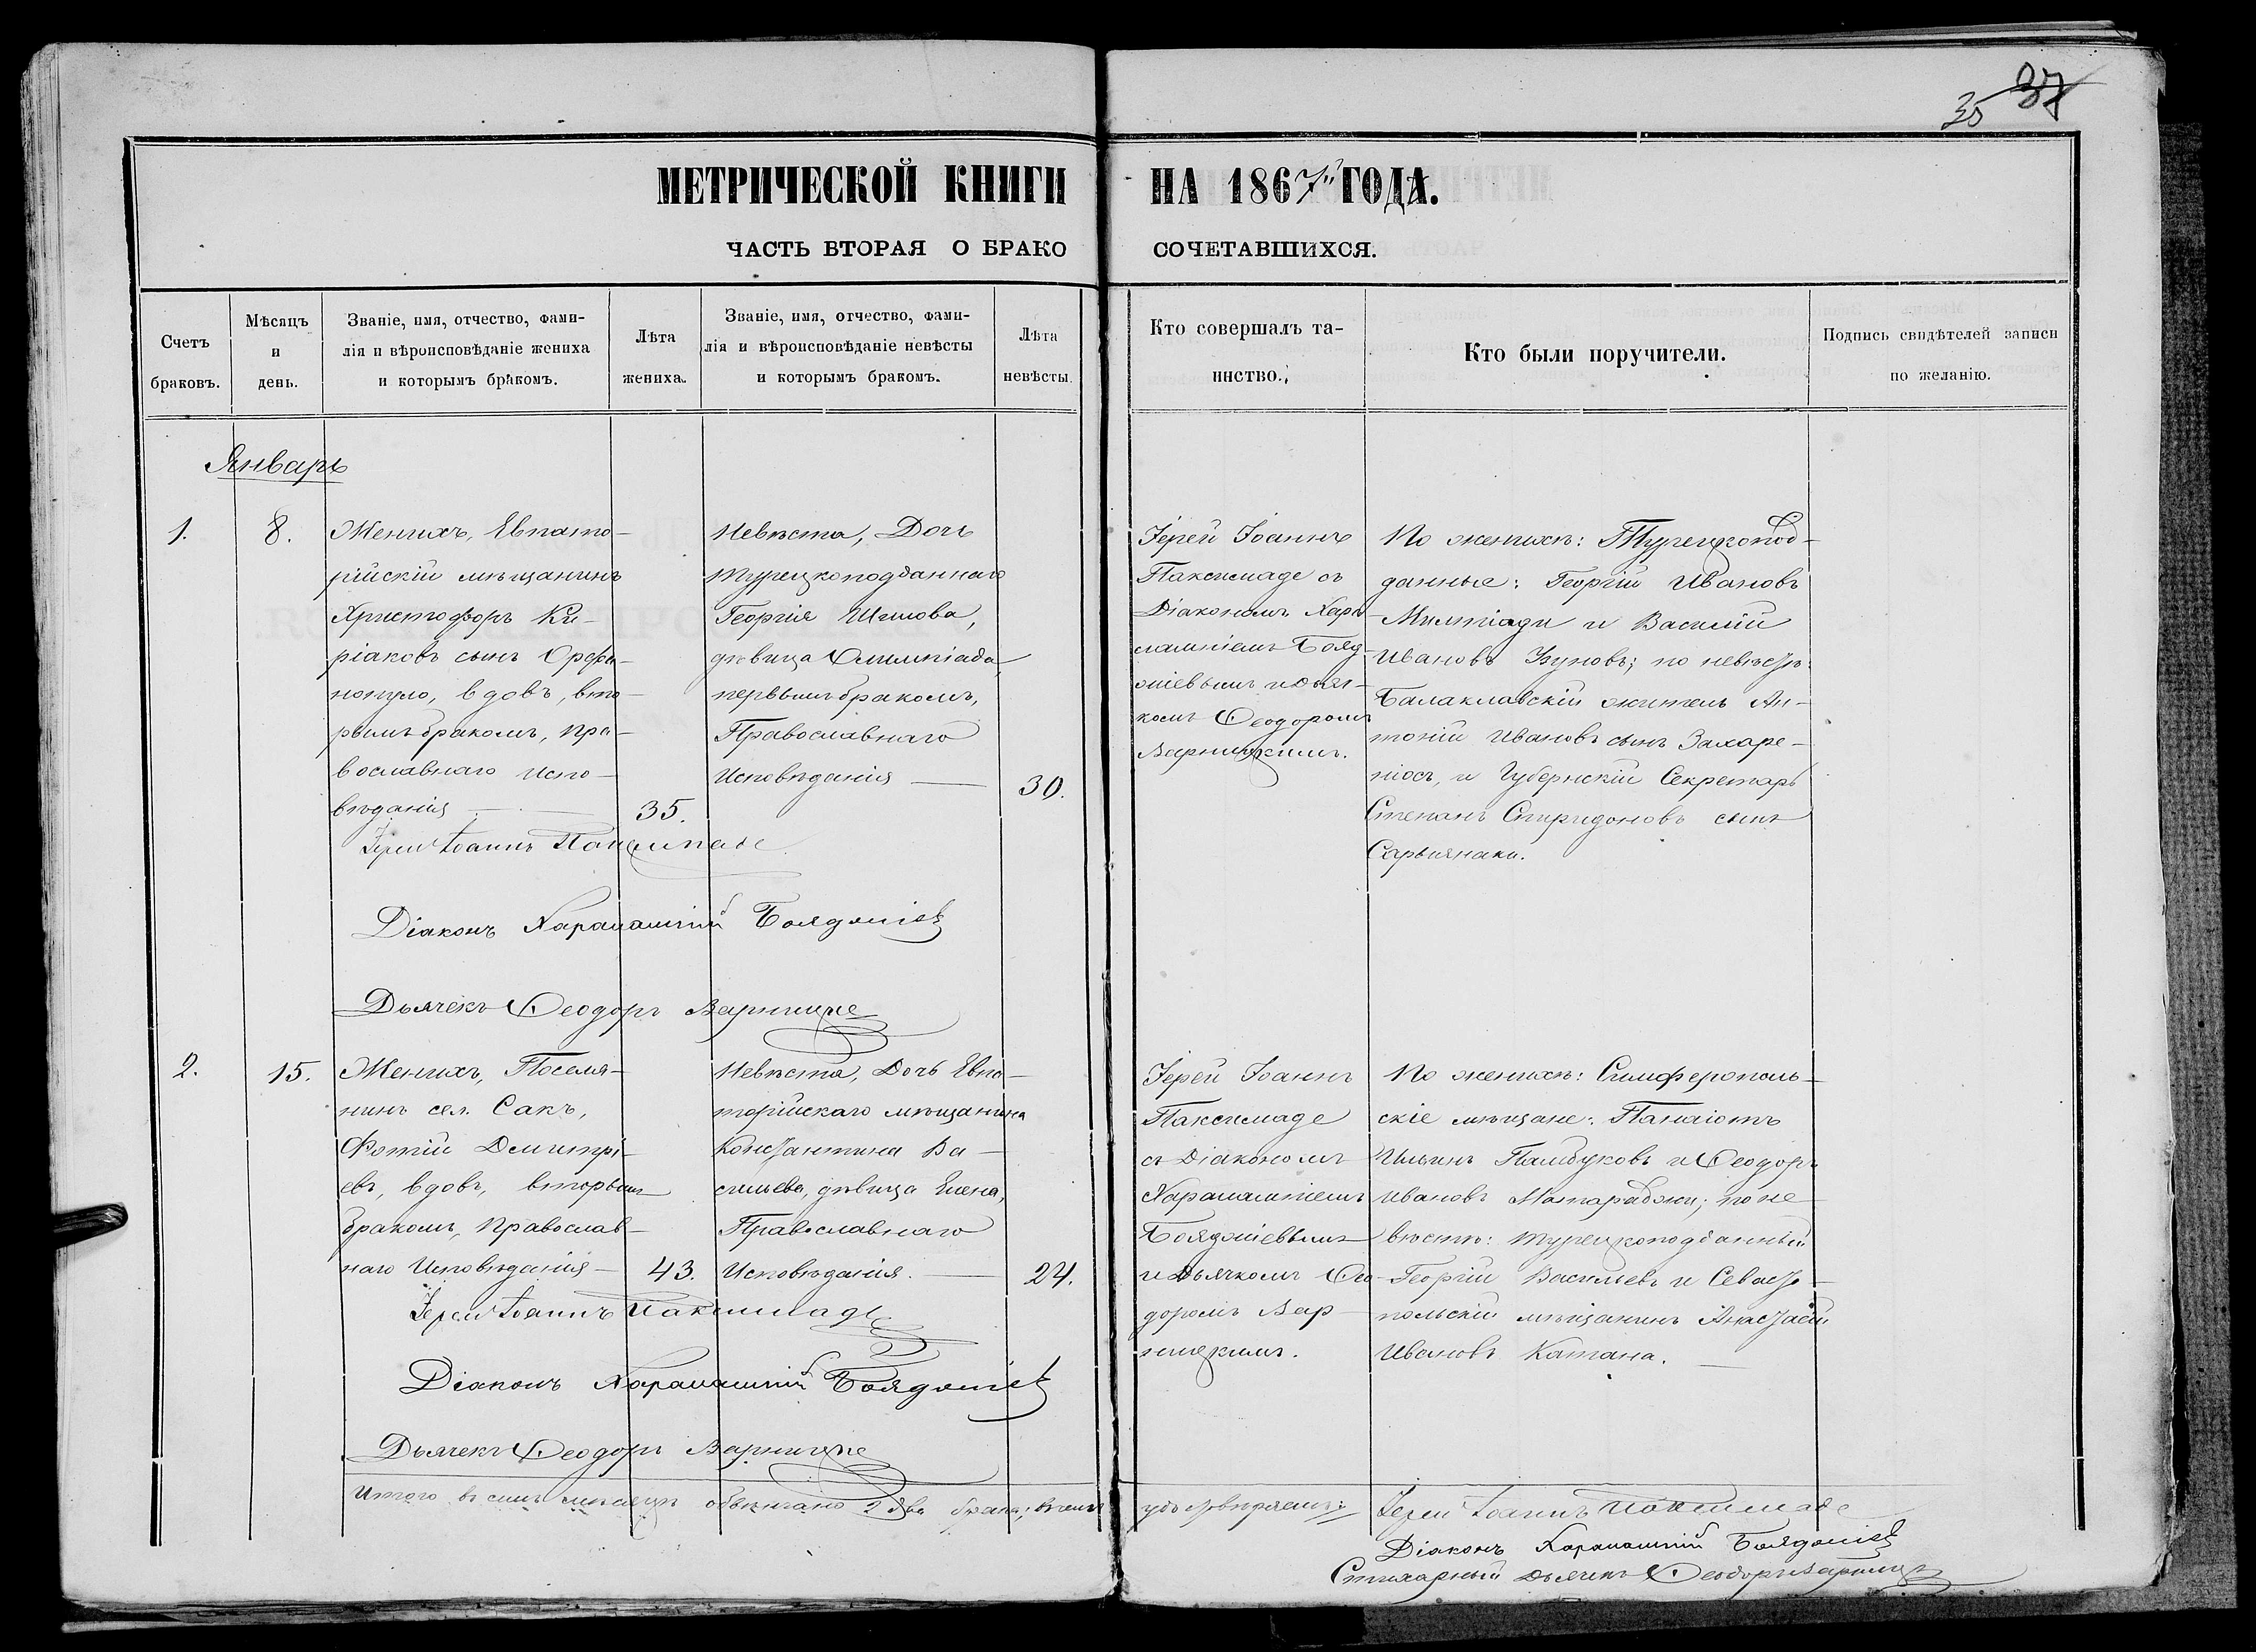 35 37
МЕТРИЧЕСКОЙ КНИГИ НА 1867 ГОДА.
ЧАСТЬ ВТОРАЯ О БРАКОСОЧЕТАВШИХСЯ.
Счетъ браковъ.
Мѣсяцъ и день.
Званіе, имя, отчество, фами-
лія и вѣроисповѣданіе жениха
и которымъ бракомъ.
Лѣта жениха.
Званіе, имя, отчество, фами-
лія и вѣроисповѣданіе невѣсты
и которымъ бракомъ.
Лѣта невѣсты.
Кто совершалъ та-
инство.
Кто были поручители.
Подпись свидѣтелей записи
по желанію.
Январь
1.
8.
Женихъ, Евпато-
рійскій мѣщанинъ
Христофоръ Ки-
ріаковъ сынъ Орфа-
нопуло, вдовъ, вто-
рымъ бракомъ, пра-
вославнаго испо-
вѣданія
35.
Невѣста, Дочь
турецкоподданнаго
Георгія
дѣвица Олимпіада,
первымъ бракомъ,
Православнаго
Исповѣданія
30.
Іерей Іоаннъ
Паксимаде съ
Діакономъ Хара-
лампіемъ Бояд-
жіевымъ и дьяч-
комъ Ѳеодоромъ
Варницкимъ.
По женихѣ: Турецкопод-
данные: Георгій Ивановъ
Милтіади и Василій
Ивановъ Узуновъ; по невѣстѣ:
Балаклавскій житель Ан-
тоній Ивановъ сынъ Захаре-
ніосъ, и Губернскій Секретарь
Степанъ Спиридоновъ сынъ
Іерей Іоаннъ Паксимаде
Діаконъ Харалампій Бояджіевъ
Дьячекъ Ѳеодоръ Варницкіе
2.
15.
Женихъ, Поселя-
нинъ сел. Сакъ,
Фотій Димитрі-
евъ, вдовъ, вторымъ
бракомъ, православ-
наго Исповѣданія
43.
Невѣста, Дочь Евпа-
торійскаго мѣщанина
Константина Ва-
сильева, дѣвица Елена,
Православнаго
Исповѣданія.
24.
Іерей Іоаннъ
Паксимаде
съ Діакономъ
Харалампіемъ
Бояджіевымъ
и Дьячкомъ Ѳео-
доромъ Вар-
ницкимъ.
По женихѣ: Симферополь-
скіе мѣщане: Панаіотъ
Ильинъ Памбуковъ и Ѳеодоръ
Ивановъ Матараджи; по не-
вѣстѣ: турецкоподданный
Георгій Васильевъ и Севасто-
польскій мѣщанинъ Анастасій
Ивановъ Катана.
Іерей Іоаннъ Паксимаде
Діаконъ Харалампій Бояджіевъ
Дьячекъ Ѳеодоръ Варницкіе
Итого въ семъ мѣсяцѣ обвѣнчано 2 два брака; въ чемъ удостовѣряемъ: Іерей Іоаннъ Паксимаде
Діаконъ Харалампій Бояджіевъ
Стихарный дьячекъ Ѳеодоръ Варницкіе